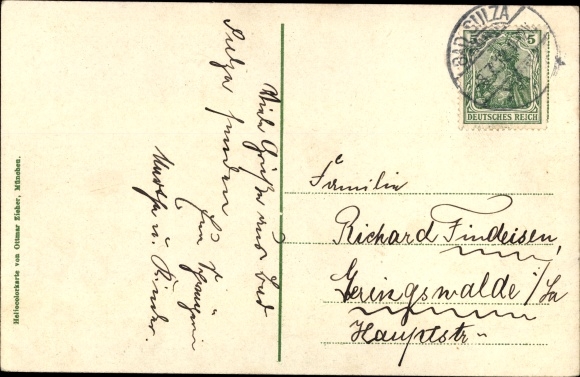 Heliocolorkarte von Ottmar Zieher, München.
Viele Grüße aus Bad
Sulza senden
Martha u. Kinder.
BAD SULZA
5 5
DEUTSCHES REICH
Familie
Richard Findeisen,
Geringswalde i/Sa
Hauptstr.